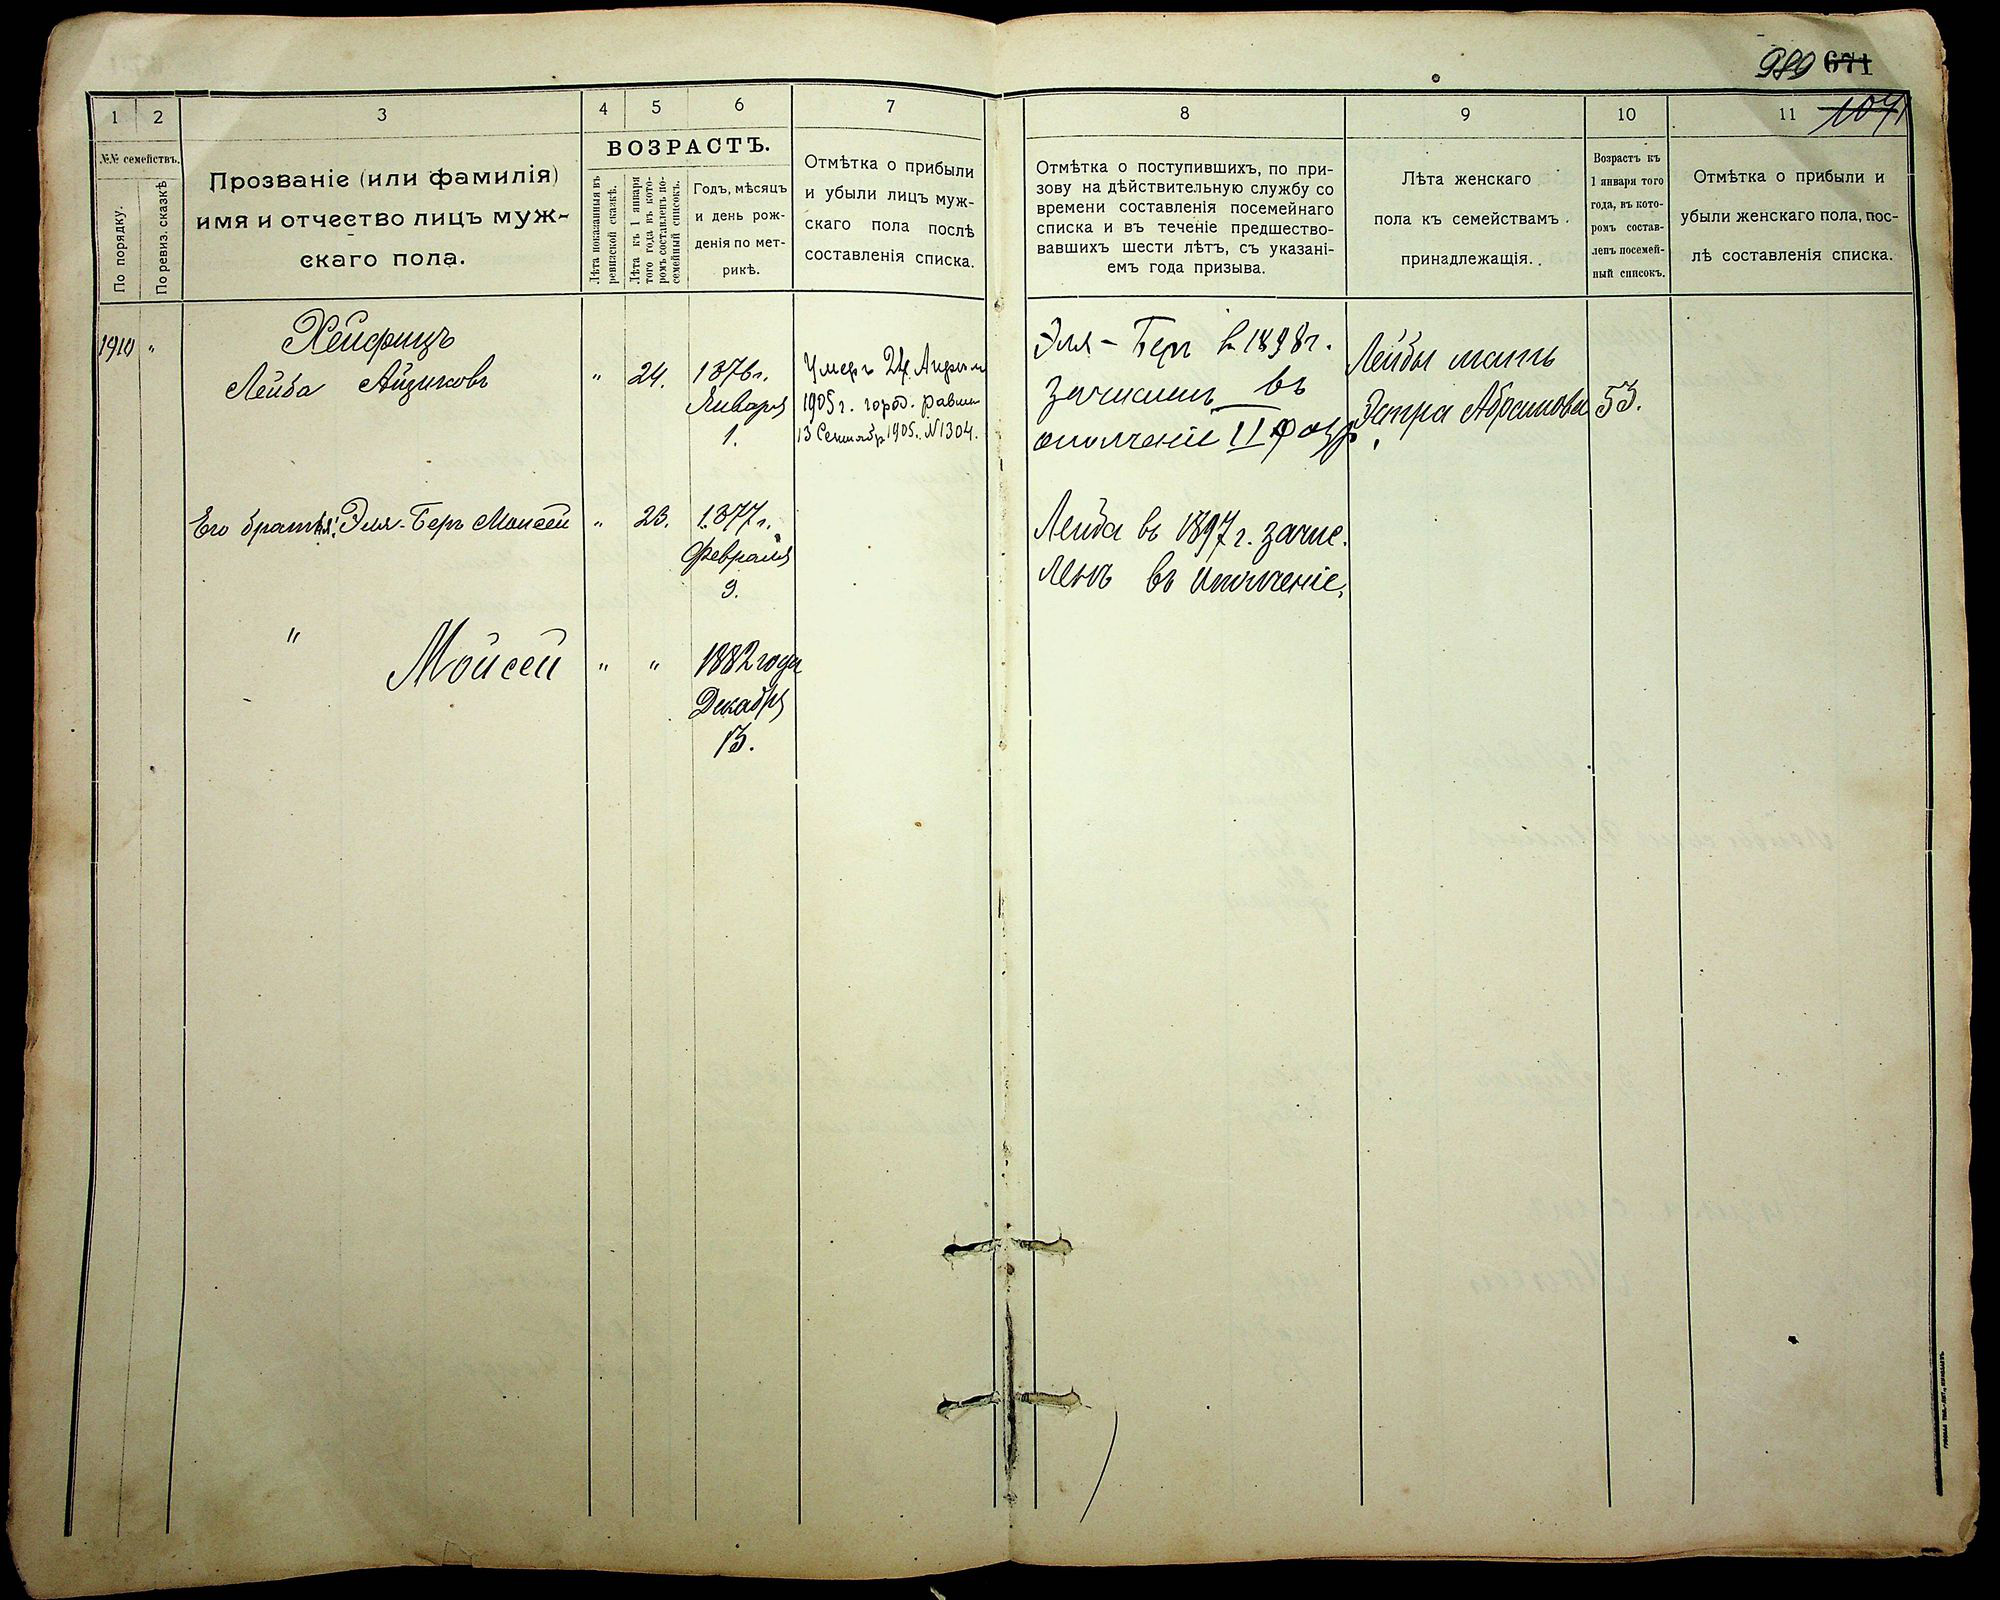 989 671
1 2 3 4 5 6 7
№№ семействъ.
По порядку.
По ревиз. сказкѣ
Прозваніе (или фамилія)
имя и отчество лицъ муж-
скаго пола.
ВОЗРАСТЪ.
Лѣта показанныя въ
ревизской сказкѣ.
Лѣта къ 1 января
того года въ кото-
ромъ составленъ по-
семейный списокъ.
Годъ, мѣсяцъ
и день рож-
денія по мет-
рикѣ.
Отмѣтка о прибыли
и убыли лицъ муж-
скаго пола послѣ
составленія списка.
8 9 10 11
Отмѣтка о поступившихъ, по при-
зову на дѣйствительную службу со
времени составленія посемейнаго
списка и въ теченіе предшество-
вавшихъ шести лѣтъ, съ указані-
емъ года призыва.
Лѣта женскаго
пола къ семействамъ
принадлежащія.
Возрастъ къ
1 января того
года, въ кото-
ромъ состав-
ленъ посемей-
ный списокъ.
Отмѣтка о прибыли и
убыли женскаго пола, пос-
лѣ составленія списка.
1910 "
Хейфицъ
Лейба Айзиковъ " 24. 1876 г.
Января
1.
Умеръ 24 Апрѣля
1905 г. город. равви
13 Сентябр 1905. №1304.
Эля-Беръ въ 1898 г.
зачисленъ въ
ополченіе II разр.
Лейбы мать
Эстра Абрамова 53.
Его братья: Эля-Беръ Моисей " 23. 1877 г.
Февраля
9.
Лейба въ 1897 г. зачис.
ленъ въ ополченіе.
" Мойсей " " 1882 года
Декабря
13.